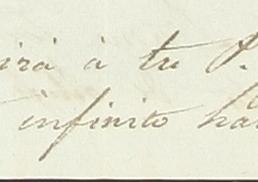 irá à tu P.
infinito ha